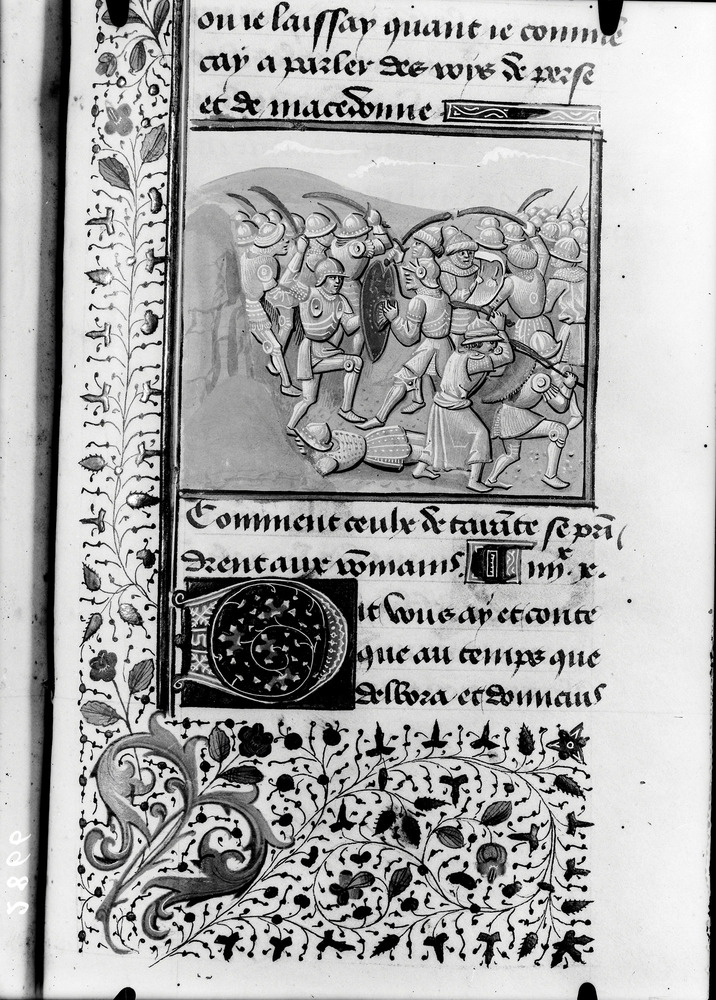 ou ie laissay quant ie comme
cay a parler des roys de perse
et de macedonne
Comment ceulx de tarente se prin
drent aux rommains.
iiii. x.
it vous ay et conte
que au temps que
delbora et
2866